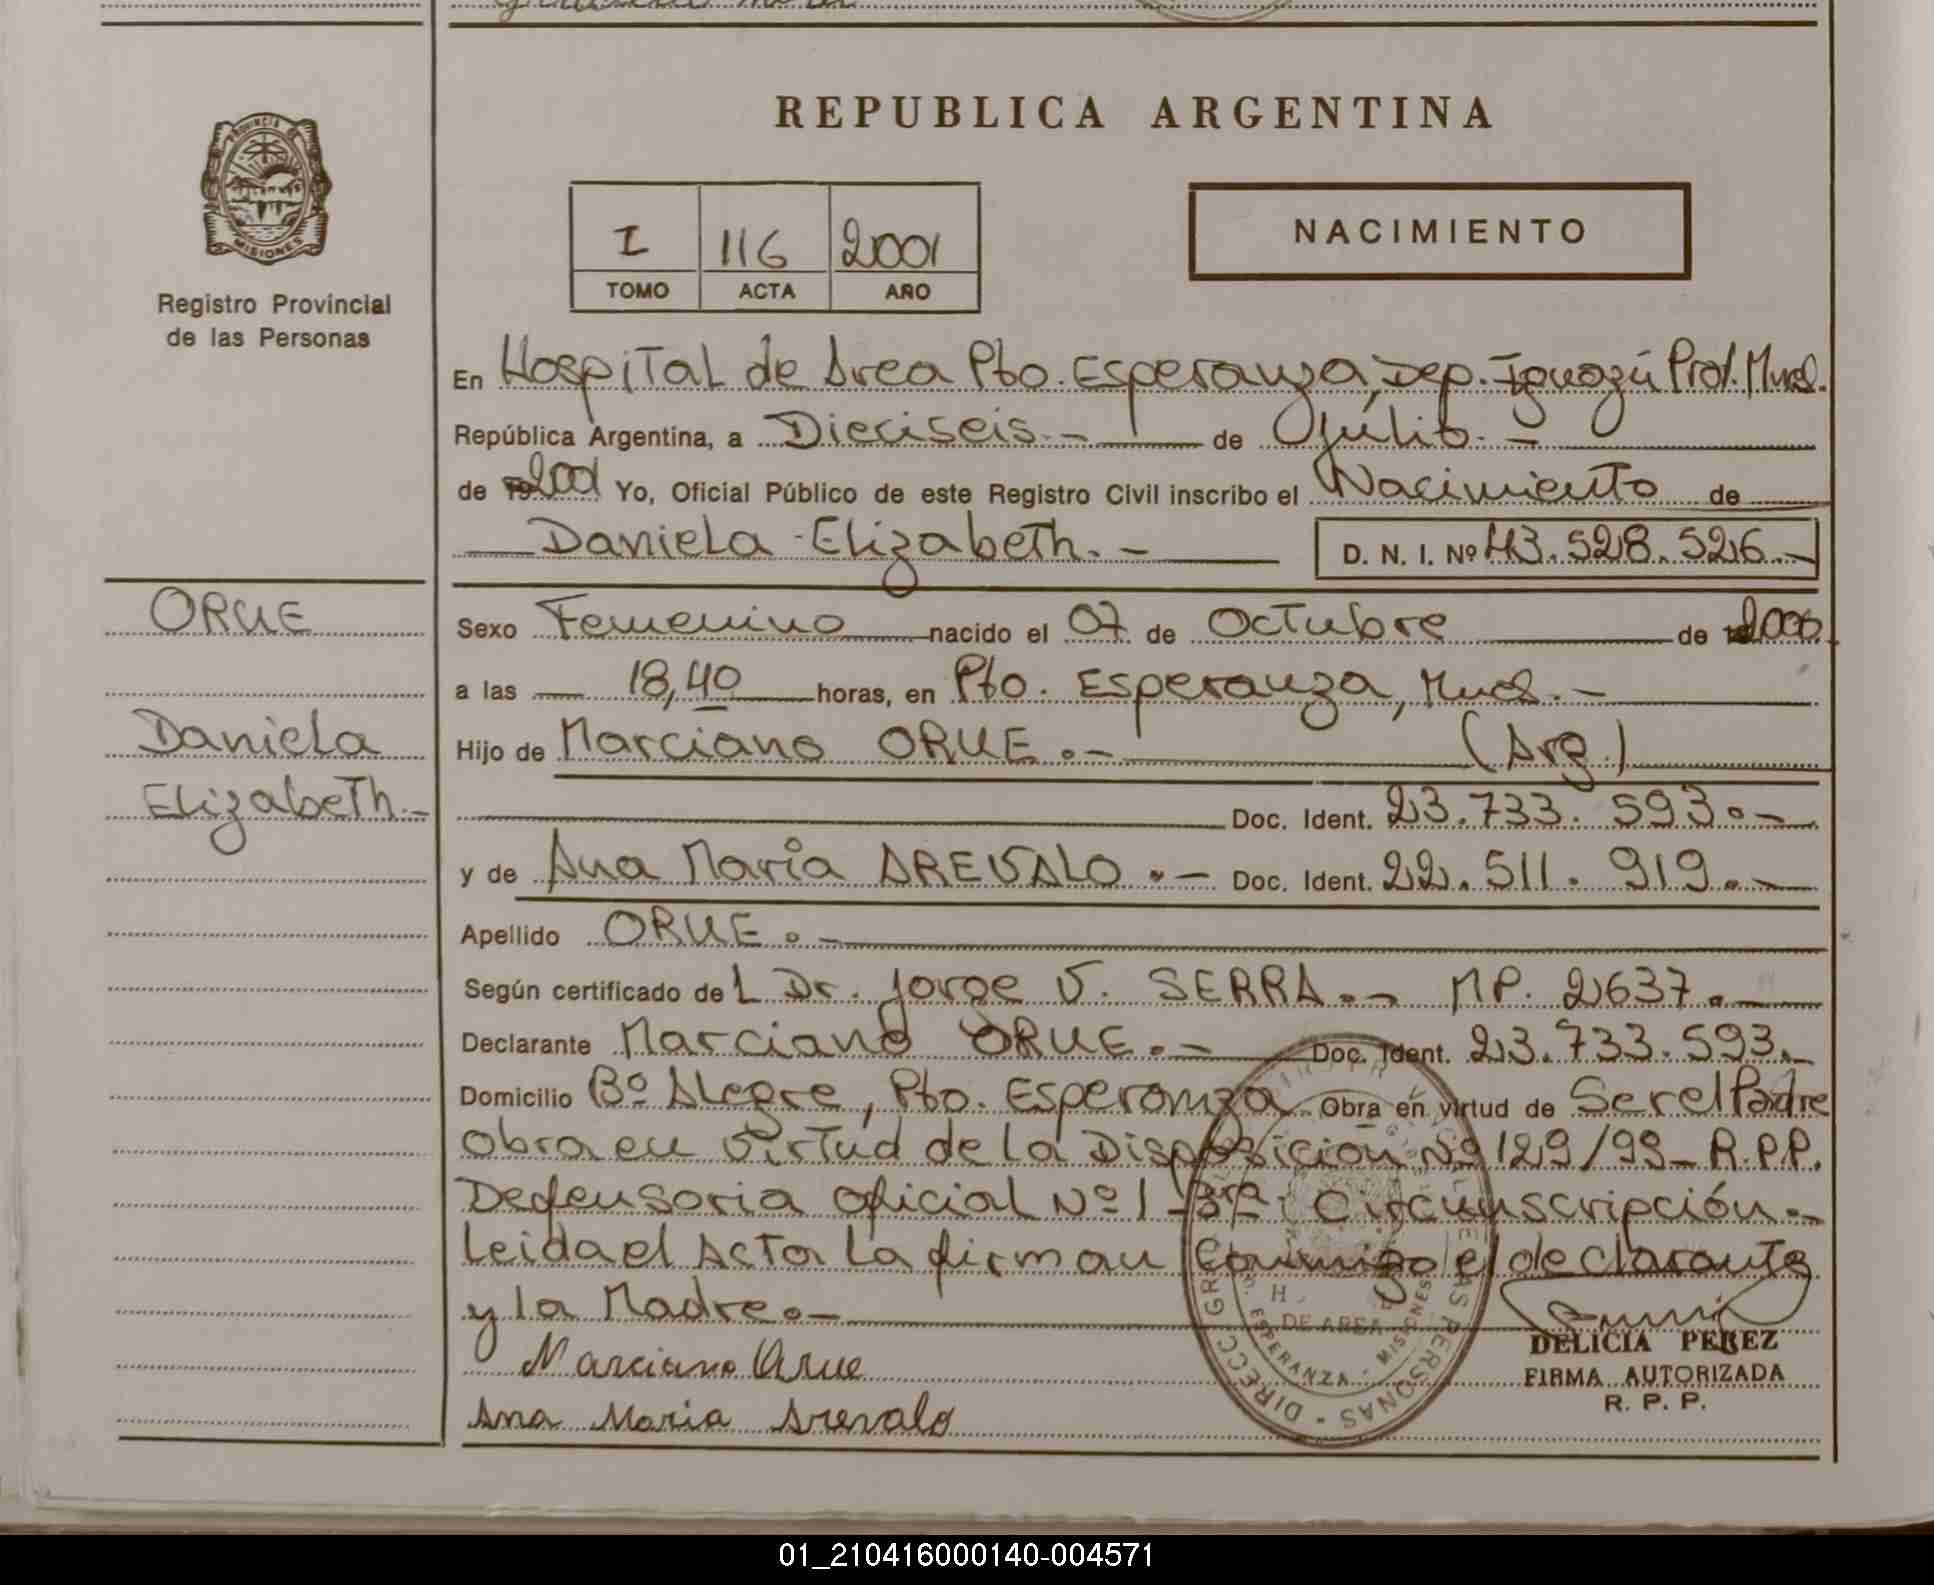 REPUBLICA ARGENTINA
PROVINCIA DE MISIONES
Registro Provincial
de las Personas
I 116 2001
TOMO ACTA AÑO
NACIMIENTO
En Hospital de Area Pto. Esperanza, Dep. Iguazú Prov. Mnes.
República Argentina, a Dieciseis.- de Júlio.-
de 2001 Yo, Oficial Público de este Registro Civil inscribo el Nacimiento de
Daniela Elizabeth.- D. N. I. Nº 43.528.526.-
ORUE
Daniela
Elizabeth.-
Sexo Femenino nacido el 07 de Octubre de 2000
a las 18,40 horas, en Pto. Esperanza, Mnes.-
Hijo de Marciano ORUE.- (Arg.)
Doc. Ident. 23.733.593.-
y de Ana María AREVALO.- Doc. Ident. 22.511.919.-
Apellido ORUE.-
Según certificado de L Dr. Jorge V. SERRA.- MP. 2637.-
Declarante Marciano ORUE.- Doc. Ident. 23.733.593.-
Domicilio Bº Alegre, Pto. Esperanza Obra en virtud de Ser el Padre
Obra en Virtud de la Disposición Nº 129/99- R.P.P.
Defensoria Oficial Nº 1-3ra. Circunscripción.-
Leida el Acta la firman Conmigo el declarante
y la Madre.-
Marciano Orue
Ana Maria Arevalo
DE AREA
ESPERANZA - MISIONES
DELICIA PEREZ
FIRMA AUTORIZADA
R. P. P.
01_210416000140-004571